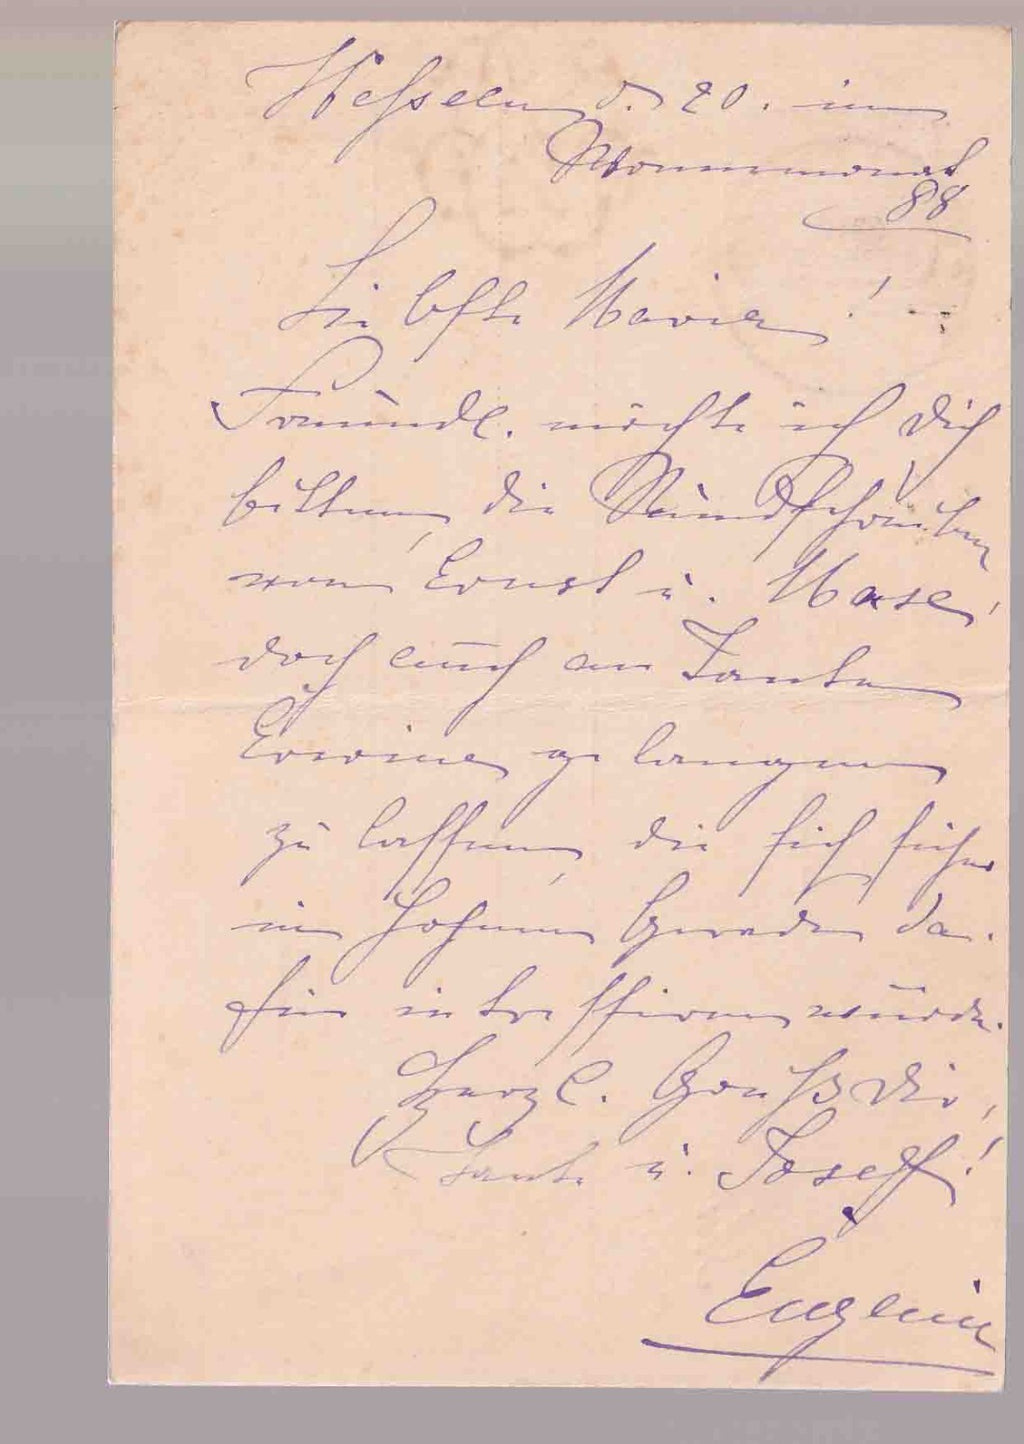 Wesseln d. 20. im
Wonnemonat
88
Liebste Marie!
Freundl. möchte ich Dich
bitten, die Rundschreiben
von Ernst u. Max,
doch auch an Tante
Erwine gelangen
zu lassen, die sich sicher
im hohen Grade da-
für interessiren würde.
Herzl. Gruß Dir,
Tante u. Josef!
Eugenie